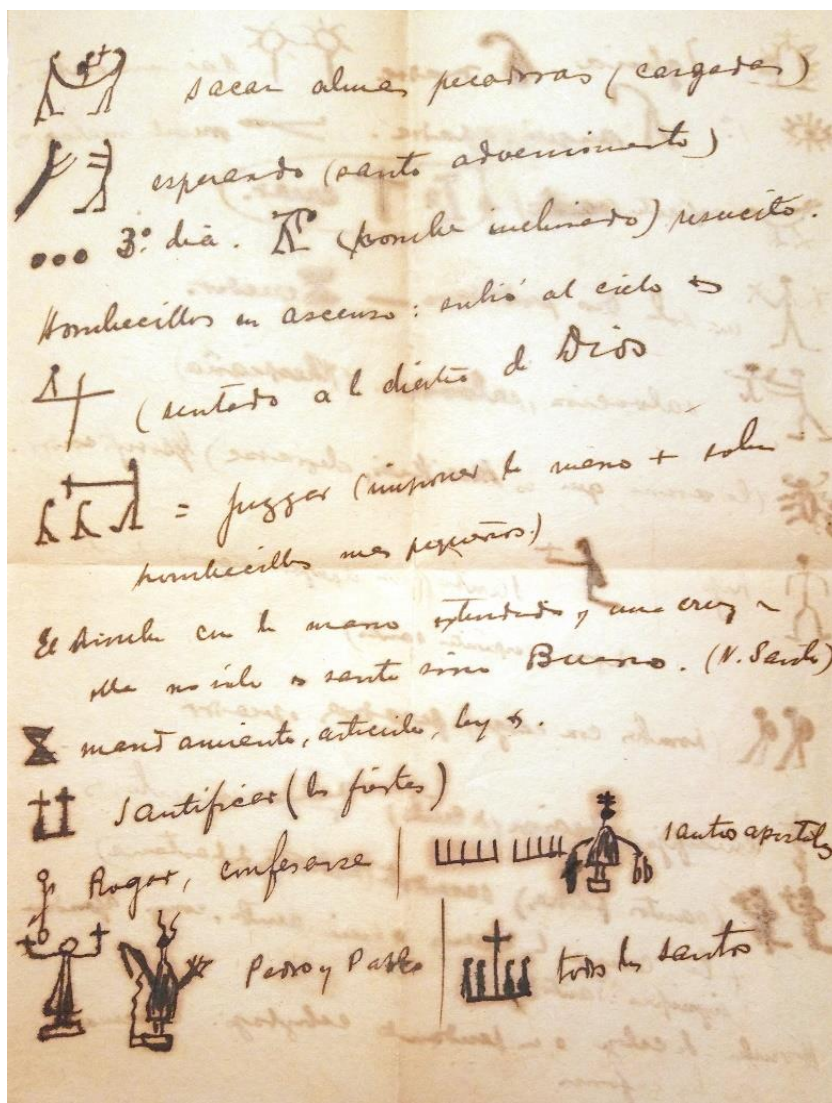 sacan almas pecadoras (cargadas)
esperando (santo advenimiento)
3º. dia. (hombre inclinado) resucito.
Hombrecillos en ascenso: subió al cielo
(sentado a la diestra de Dios
= Juzgar (imponer la mano + sobre
hombrecillos mas pequeños)
El hombre con la mano extendida y una cruz
ella no solo es santo sino Bueno. (N. Santo)
mandamiento, articulo, ley
Santificar (las fiestas)
Rogar, confesarse
santos apostoles
Pedro y Pablo
todos los santos